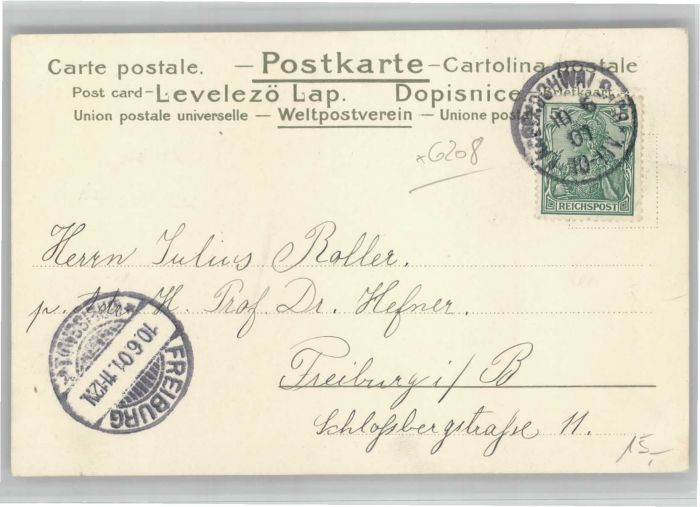 Carte postale. — Postkarte — Cartolina postale
Post card — Levelezö Lap. Dopisnice Briefkaart
Union postale universelle — Weltpostverein — Unione postale
10 6
01
10-11
REICHSPOST
*6208
Herrn Julius Roller.
p. Adr. H. Prof. Dr. Hefner.
Freiburg i/B
Schloßbergstraße 11.
FREIBURG
10.6.01.11-12N
15,-